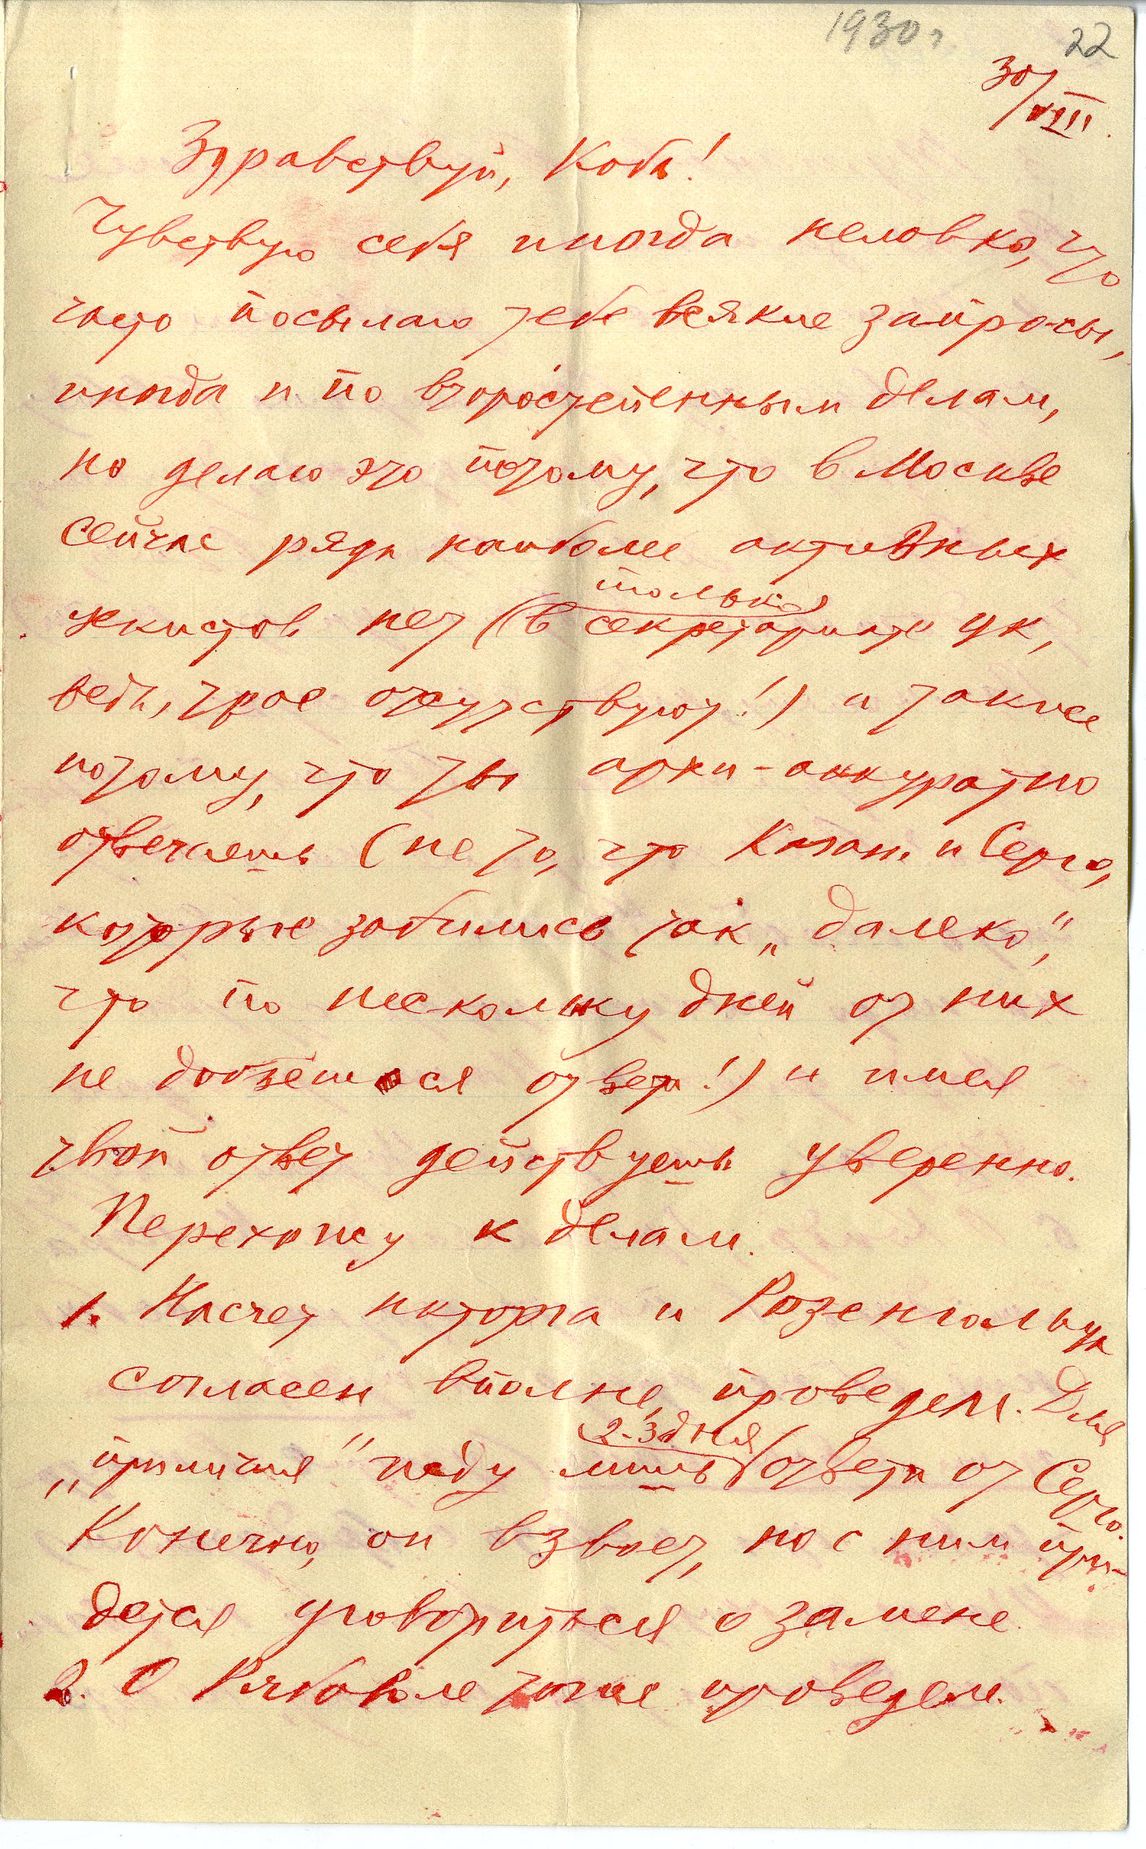 1930 г
22
30/VIII.
Здравствуй, Коба!
Чувствую себя иногда неловко, что
часто посылаю тебе всякие запросы,
иногда и по второстепенным делам,
но делаю это потому, что в Москве
сейчас ряда наиболее активных
цекистов нет (в
только
секретариате ЦК,
ведь, трое отсутствуют!) и также
потому, что ты архи-аккуратно
отвечаешь (не то, что Каган. и Серго,
которые забились так „далеко",
что по нескольку дней от них
не добьешься ответа!) и имея
твой ответ действуешь уверенно.
Перехожу к делам.
1. Насчет и Розенгольца
согласен вполне, проведем. Для
„приличия" жду лишь
2-3 дня
ответа от Серго.
Конечно, он взвоет, но с ним при-
дется уговориться о замене.
2. О Рябоволе тоже проведем.